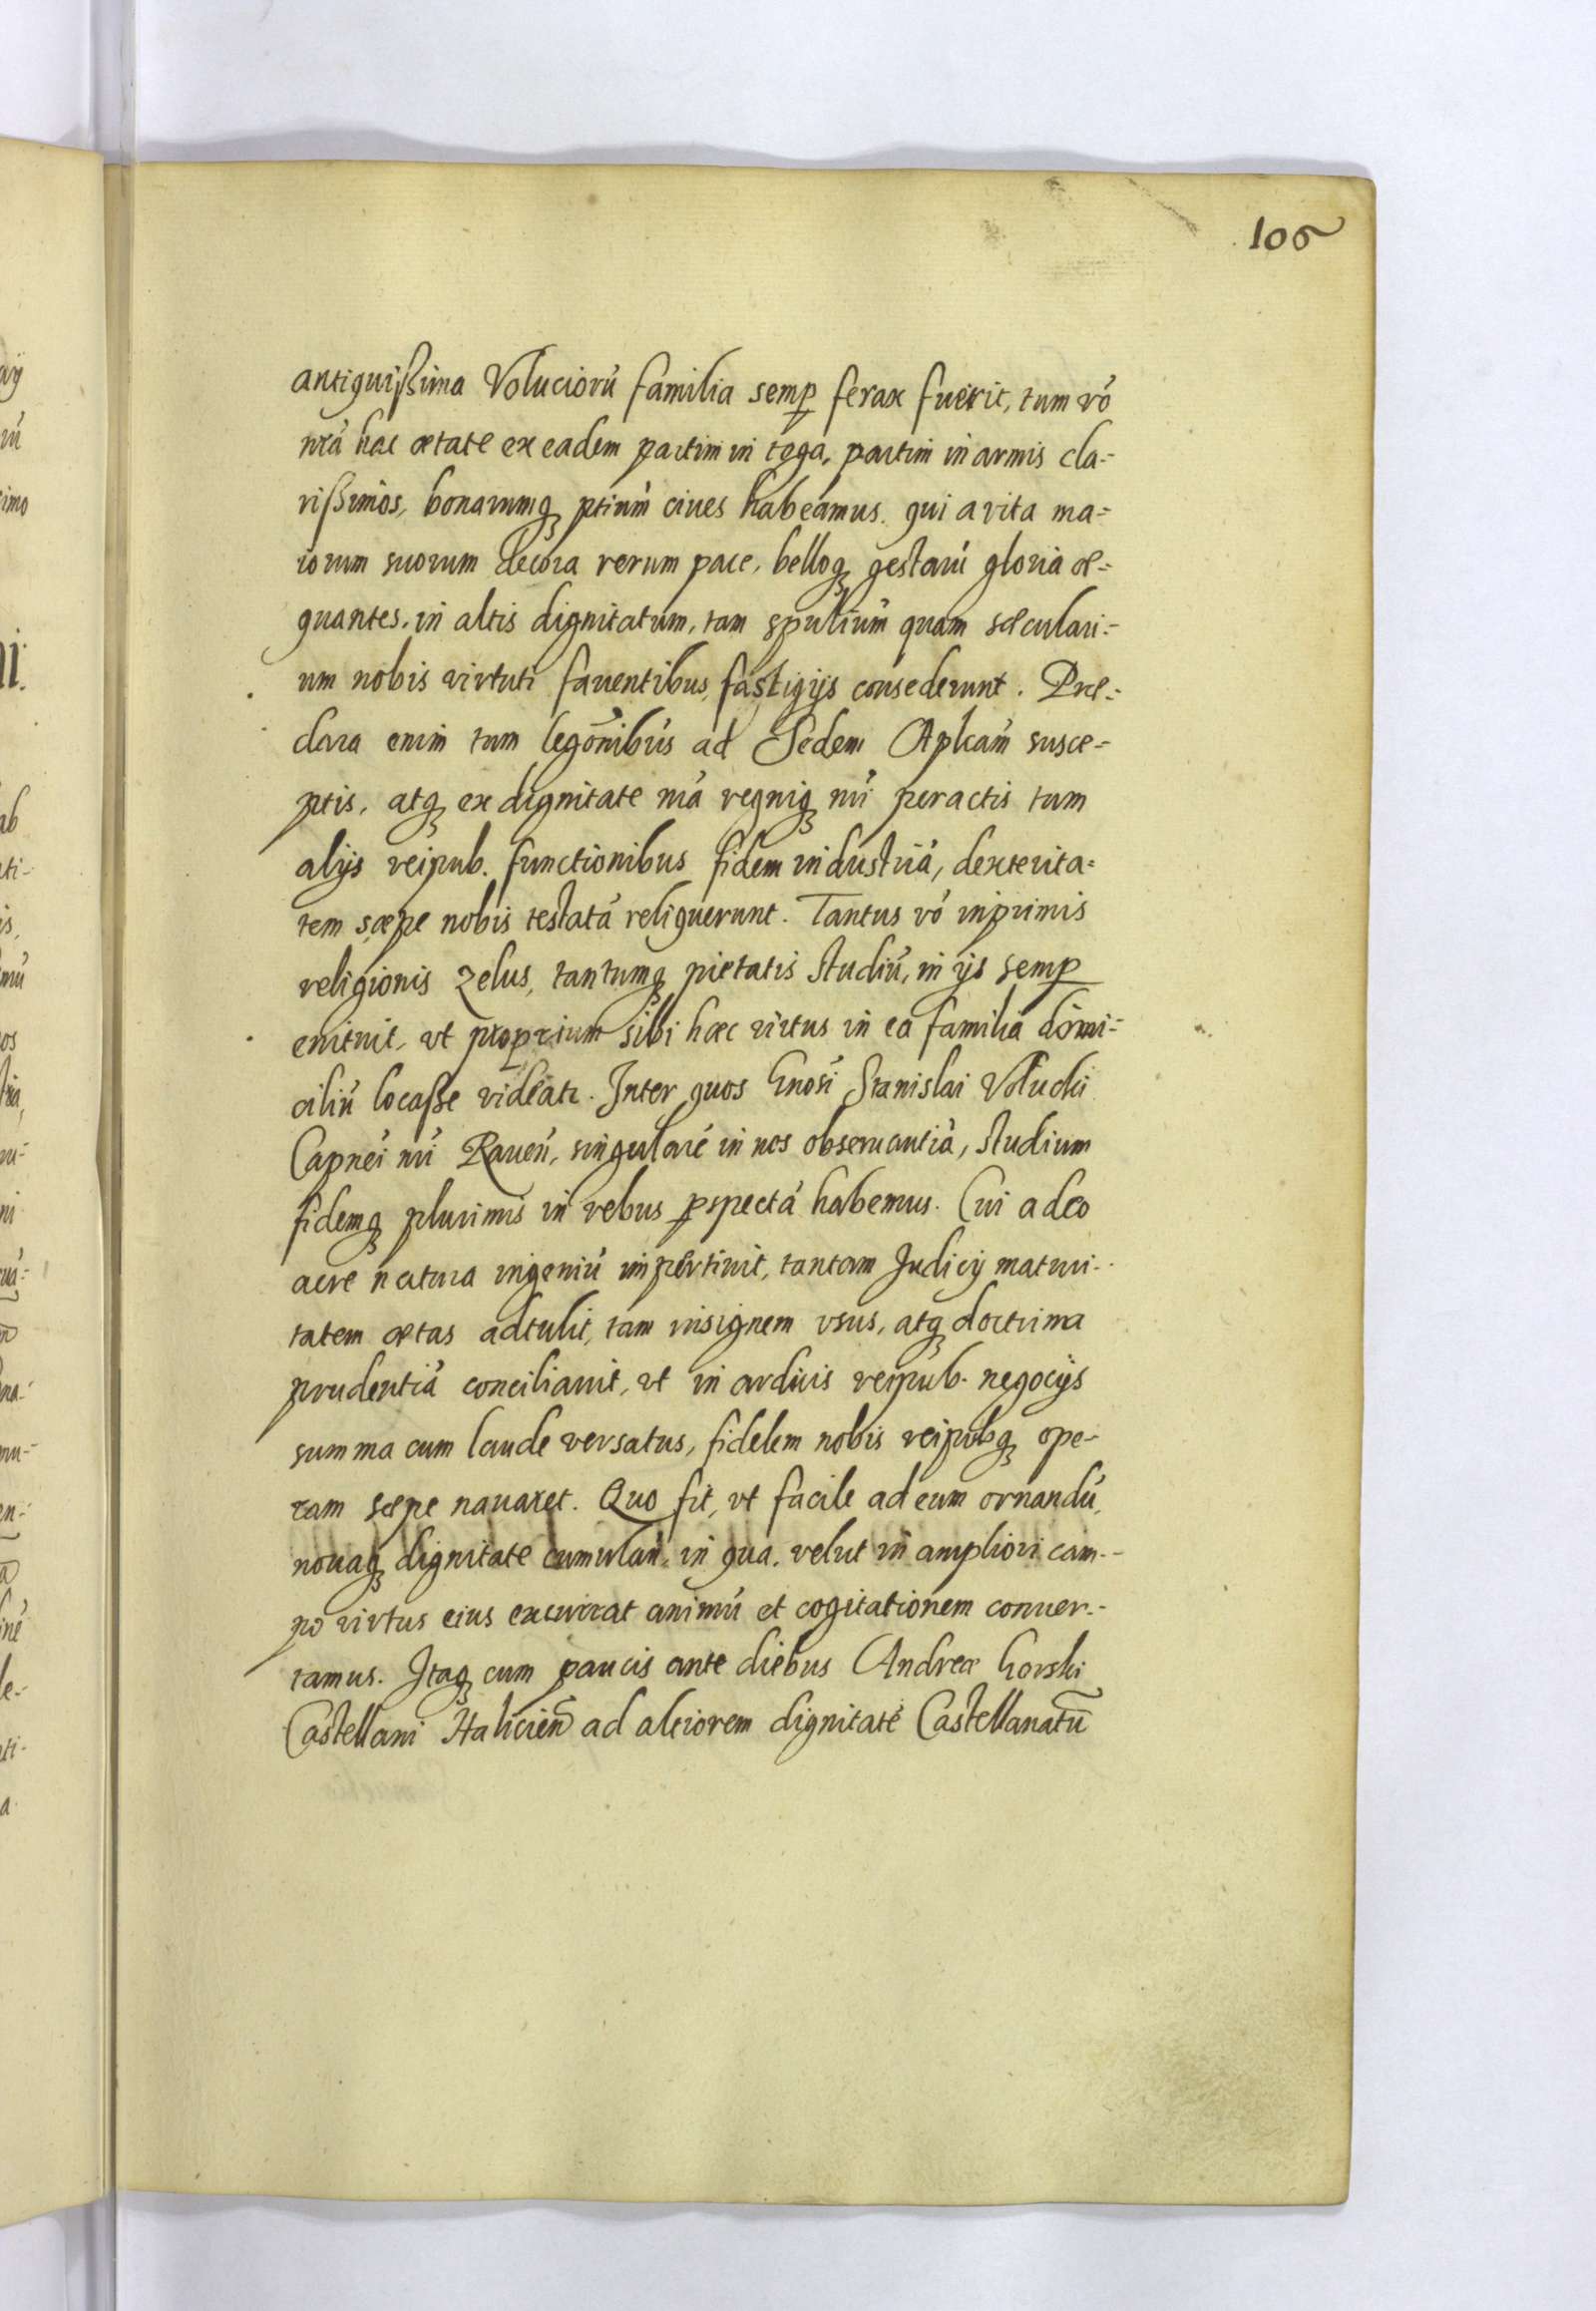 106
antiquißima Voluciorū familia semp ferax fuerit, tum vō
nrā hac ætate ex eadem partim in toga, partim in armis cla=
rißimos, bonarumq̨ ptium ciues habeamus. qui avita ma=
iorum suorum decora rerum pace, belloq̨ gestarū gloria æ=
quantes, in altis dignitatum, tam spūlium quam sæculari=
um nobis virtuti fauentibus fastigijs consederunt. Præ=
clara enim tum legōnibus ad Sedem Aplcam susce=
ptis, atq̨ ex dignitate nrā regniq̨ nrī peractis tum
alijs reipub. functionibus fidem industriā, dexterita=
tem sæpe nobis testatā reliquerunt. Tantus vō inprimis
religionis zelus, tantumq̨ pietatis studiū, in ijs semp
enituit, vt proprium sibi hæc virtus in ea familia domi=
ciliū locaße videatr. Inter quos Gnōsi Stanislai Volucki
Capnei nrī Rauen̄, singularē in nos obseruantiā, studium
fidemq̨ plurimis in rebus pspectā habemus. Cui adeo
acre natura ingeniū impertiuit, tantam Judicij maturi=
tatem ætas adtulit, tam insignem vsus, atq̨ doctrina
prudentiā conciliauit, vt in arduis reipub. negocijs
summa cum laude versatus, fidelem nobis reipubq̨ ope=
ram sæpe nauaret. Quo fit, vt facile ad eum ornandū,
nouaq̨ dignitate cumulan̄, in qua, velut in ampliori cam=
po virtus eius excurrat animū et cogitationem conuer=
tamus. Itaq̨ cum paucis ante diebus Andreæ Gorski
Castellani Halicien̄ ad altiorem dignitatē Castellanatū